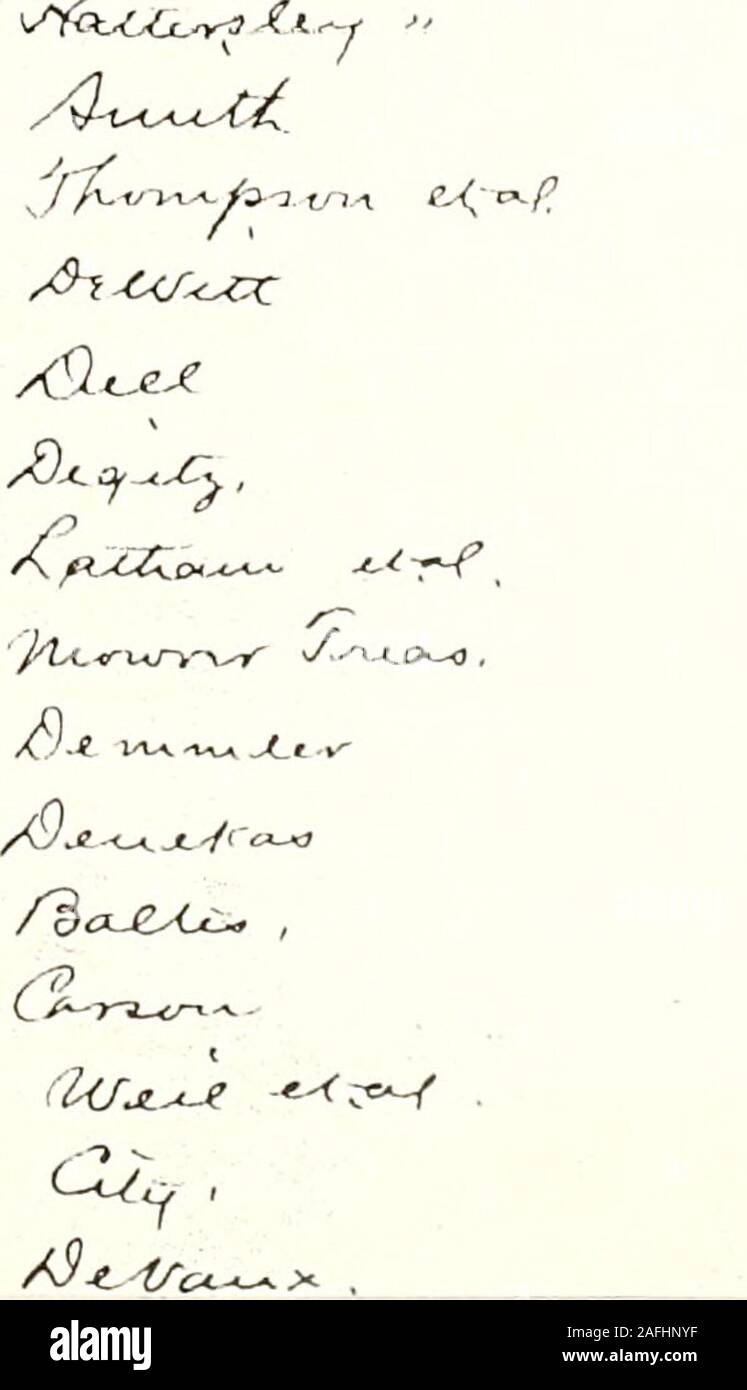 Hattersley "
Smith
Thompson et al.
DeWitt
Dill
Degitz,
Latham et al.
Mowrer Treas.
Demmler
Denekas
Baltis,
Carson
Weil et al.
City.
DeVaux.
alamy
Image ID: 2AFHNYF
www.alamy.com